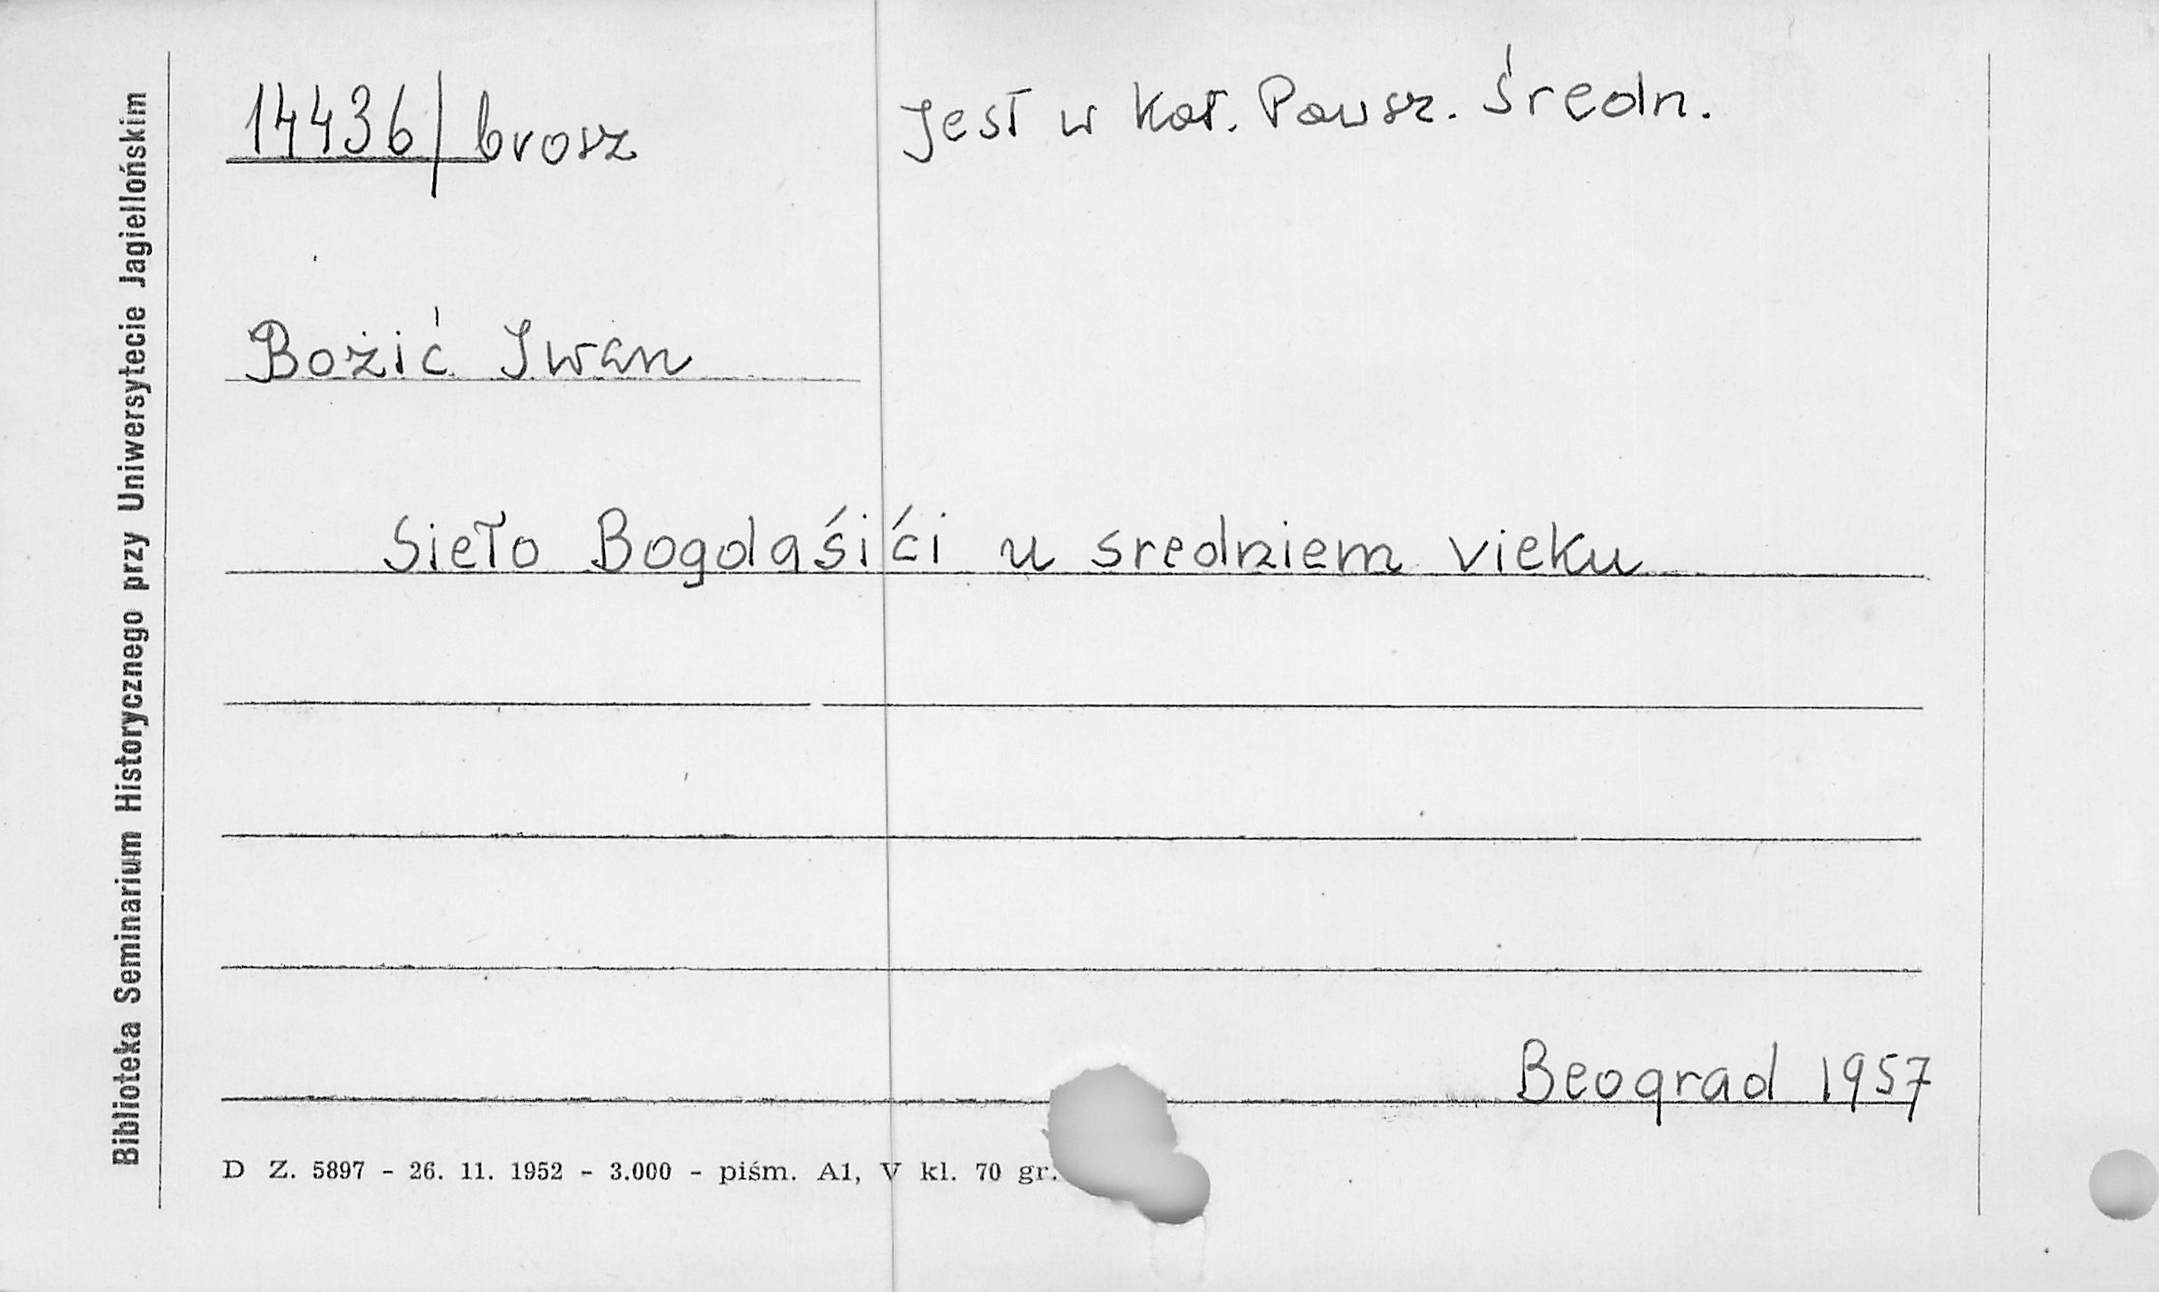 14436/brosz
Jest w Kat. Powsz. Średn.
Bożić Iwan
Sieło Bogdaśići u sredniem vieku
Beograd 1957
D Z. 5897 - 26. 11. 1952 - 3.000 - piśm. A1, V kl. 70 gr.
Biblioteka Seminarium Historycznego przy Uniwersytecie Jagiellońskim